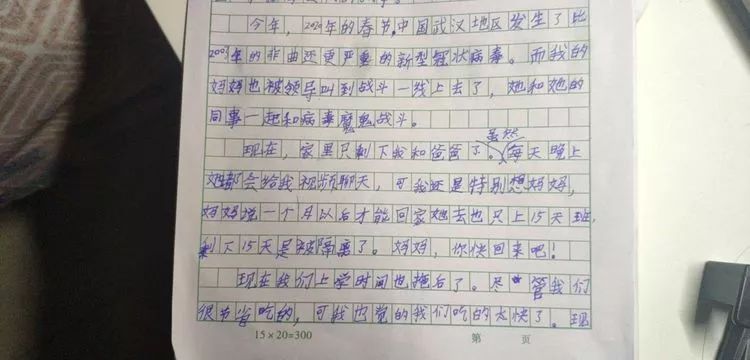 今年，2020年的春节，中国武汉地区发生了比
2003年的非典还更严重的新型冠状病毒。而我的
妈妈也被领导叫到战斗一线上去了，她和她的
同事一起和病毒魔鬼战斗。
虽然
现在，家里只剩下我和爸爸了。每天晚上
她都会给我视频聊天，可我还是特别想妈妈，
妈妈说一个月以后才能回家她去也只上15天班，
剩下15天是被隔离了。妈妈，你快回来吧！
现在我们上学时间也拖后了。尽管我们
很节省吃的，可我也觉的我们吃的太快了。现
15×20=300 第 页